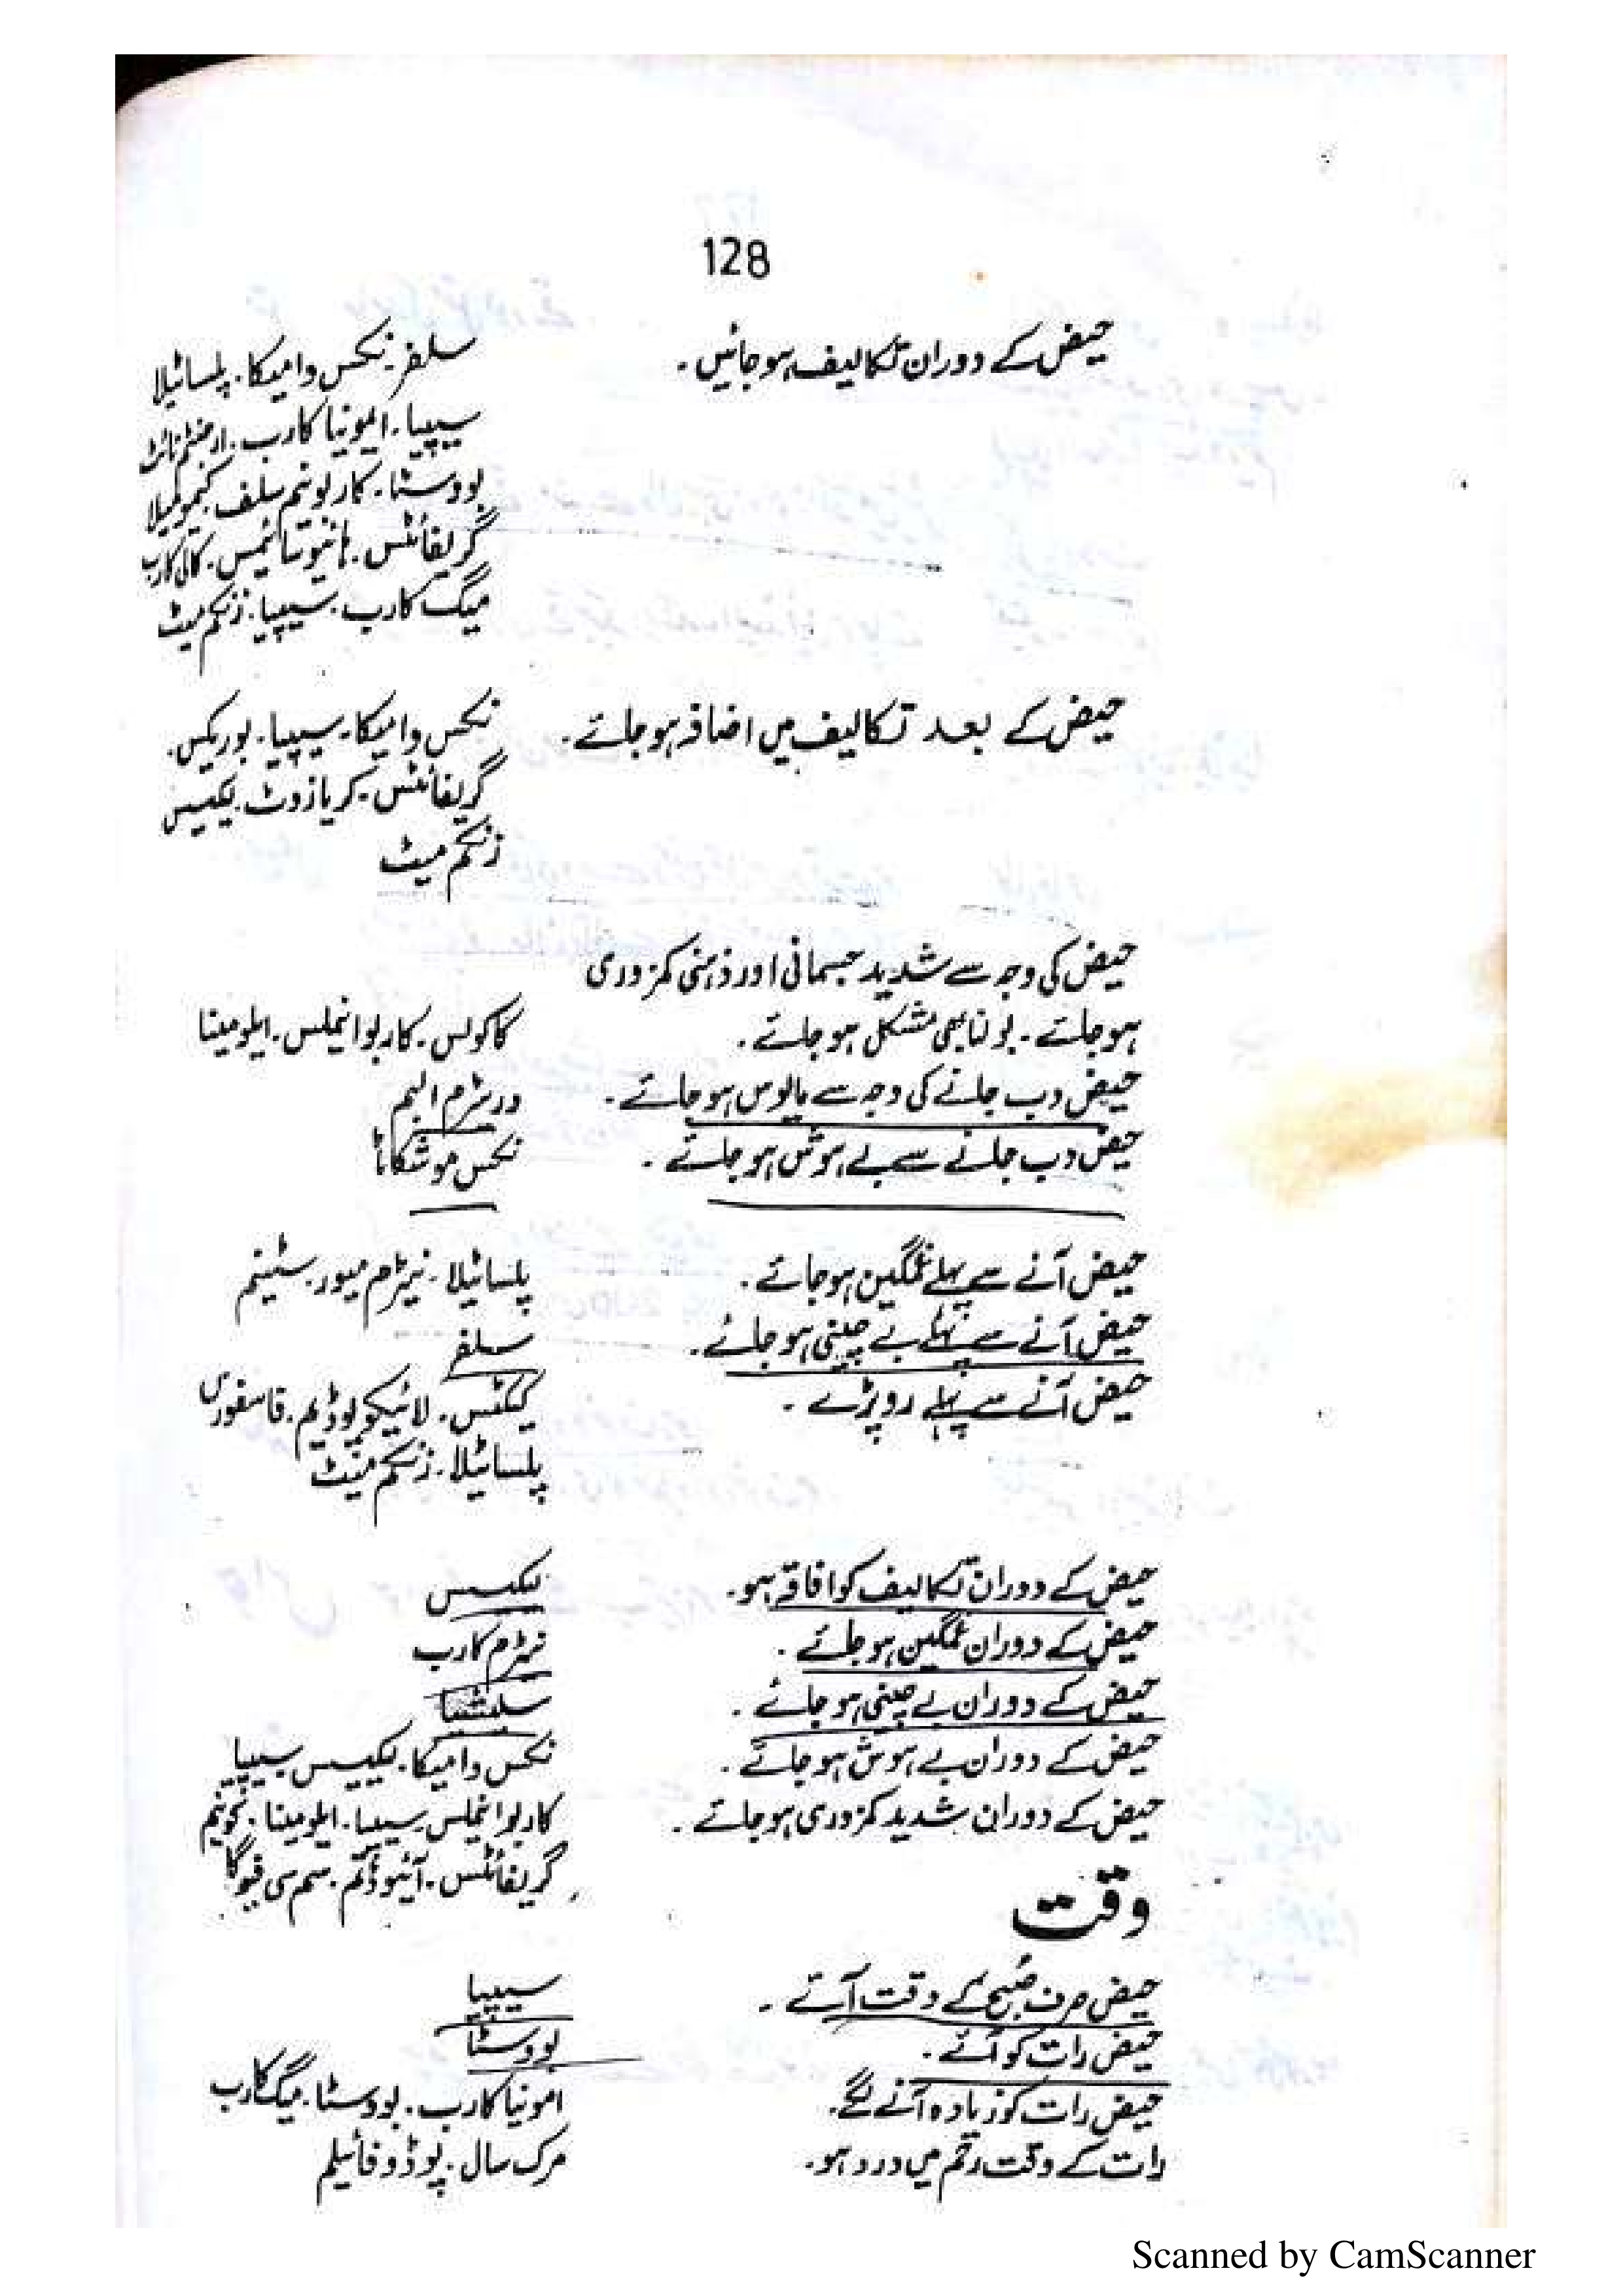 128
حیض کے دوران تکالیف ہو جائیں۔ سلفر۔ نکس وامیکا۔ پلساٹیلا
سیپیا۔ ایمونیا کارب۔ ارجنٹم نائٹ
بووسٹا۔ کاربونیم سلف۔ کیمومیلا
گریفائٹس۔ ہائیوسائمس۔ کالی کارب
میگ کارب۔ سیپیا۔ زنکم میٹ
حیض کے بعد تکالیف میں اضافہ ہو جائے۔ نکس وامیکا۔ سیپیا۔ بوریکس۔
گریفائٹس۔ کریازوٹ۔ لیکیسس
زنکم میٹ
حیض کی وجہ سے شدید جسمانی اور ذہنی کمزوری
ہو جائے۔ بولنا بھی مشکل ہو جائے۔ کاکولس۔ کاربو انیملس۔ ایلومینا
حیض دب جانے کی وجہ سے مایوس ہو جائے۔ ورٹرم البم
حیض دب جانے سے بے ہوش ہو جائے۔ نکس موشکاٹا
حیض آنے سے پہلے غمگین ہو جائے۔ پلساٹیلا۔ نیٹرم میور۔ سٹینم
حیض آنے سے پہلے بے چینی ہو جائے۔ سلفر
حیض آنے سے پہلے رو پڑے۔ کیکٹس۔ لائیکوپوڈیم۔ فاسفورس
پلساٹیلا۔ زنکم میٹ
حیض کے دوران تکالیف کو افاقہ ہو۔ لیکیسس
حیض کے دوران غمگین ہو جائے۔ نیٹرم کارب
حیض کے دوران بے چینی ہو جائے۔ سلیشیا
حیض کے دوران بے ہوش ہو جائے۔ نکس وامیکا۔ لیکیسس۔ سیپیا
حیض کے دوران شدید کمزوری ہو جائے۔ کاربو انیملس۔ سیپیا۔ ایلومینا۔
گریفائٹس۔ آئیوڈیم۔ سمی سی فیوگا
وقت
حیض صرف صبح کے وقت آئے۔ سیپیا
حیض رات کو آئے۔ بووسٹا
حیض رات کو زیادہ آنے لگے۔ امونیا کارب۔ بووسٹا۔ میگ کارب
رات کے وقت رحم میں درد ہو۔ مرک سال۔ پوڈوفائیلم
Scanned by CamScanner